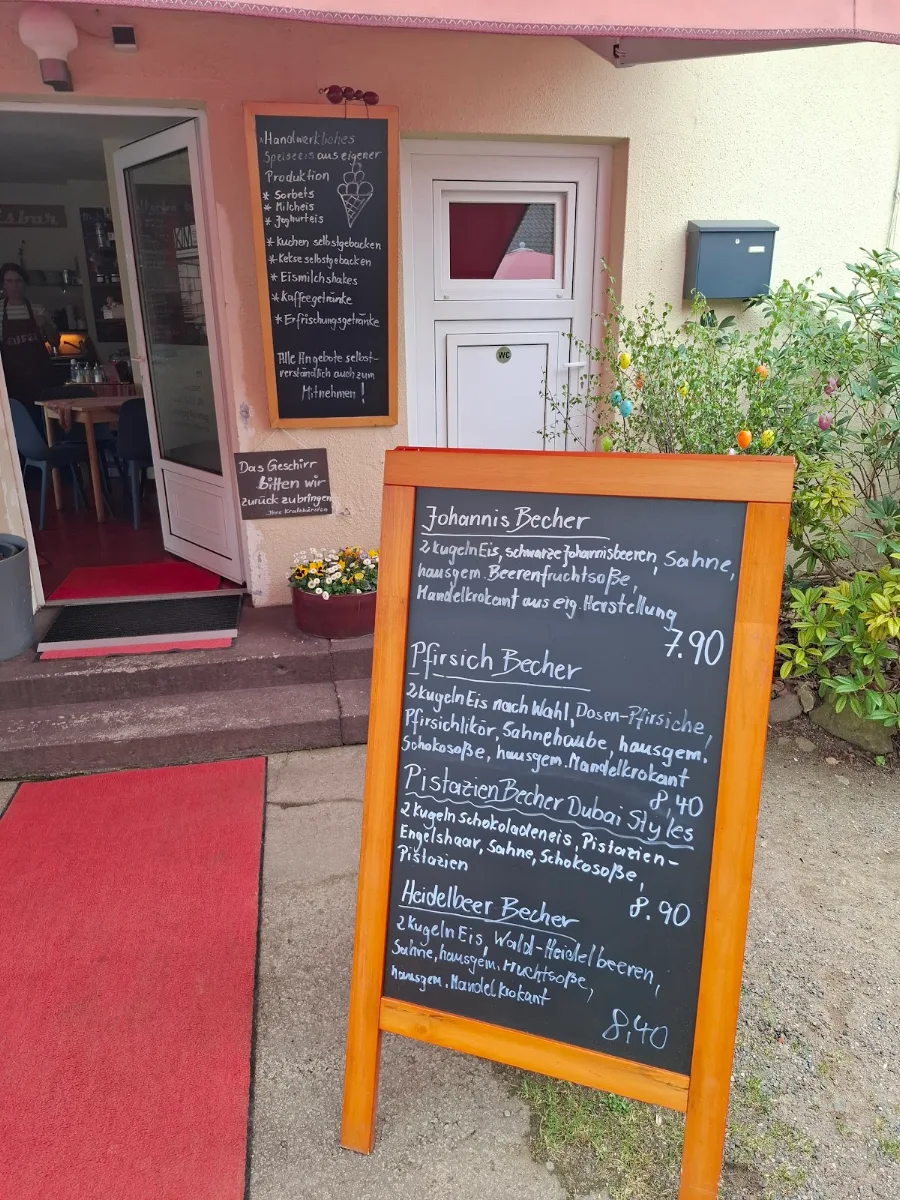 isbar
* Handwerkliches
Speiseeis aus eigener
Produktion
* Sorbets
* Milcheis
* Joghurteis
* Kuchen selbstgebacken
* Kekse selbstgebacken
* Eismilchshakes
* Kaffeegetränke
* Erfrischungsgetränke
Alle Angebote selbst-
verständlich auch zum
Mitnehmen!
WC
Das Geschirr
bitten wir
zurück zu bringen
Johannis Becher
2 Kugeln Eis, schwarze Johannisbeeren, Sahne,
hausgem. Beerenfruchtsoße,
Mandelkrokant aus eig. Herstellung
7.90
Pfirsich Becher
2 Kugeln Eis nach Wahl, Dosen-Pfirsiche,
Pfirsichlikör, Sahnehaube, hausgem.
Schokosoße, hausgem. Mandelkrokant
8,40
Pistazien Becher Dubai Styles
2 Kugeln Schokoladeneis, Pistazien-
Engelshaar, Sahne, Schokosoße,
Pistazien
8.90
Heidelbeer Becher
2 Kugeln Eis, Wald-Heidelbeeren,
Sahne, hausgem. Fruchtsoße,
hausgem. Mandelkrokant
8,40